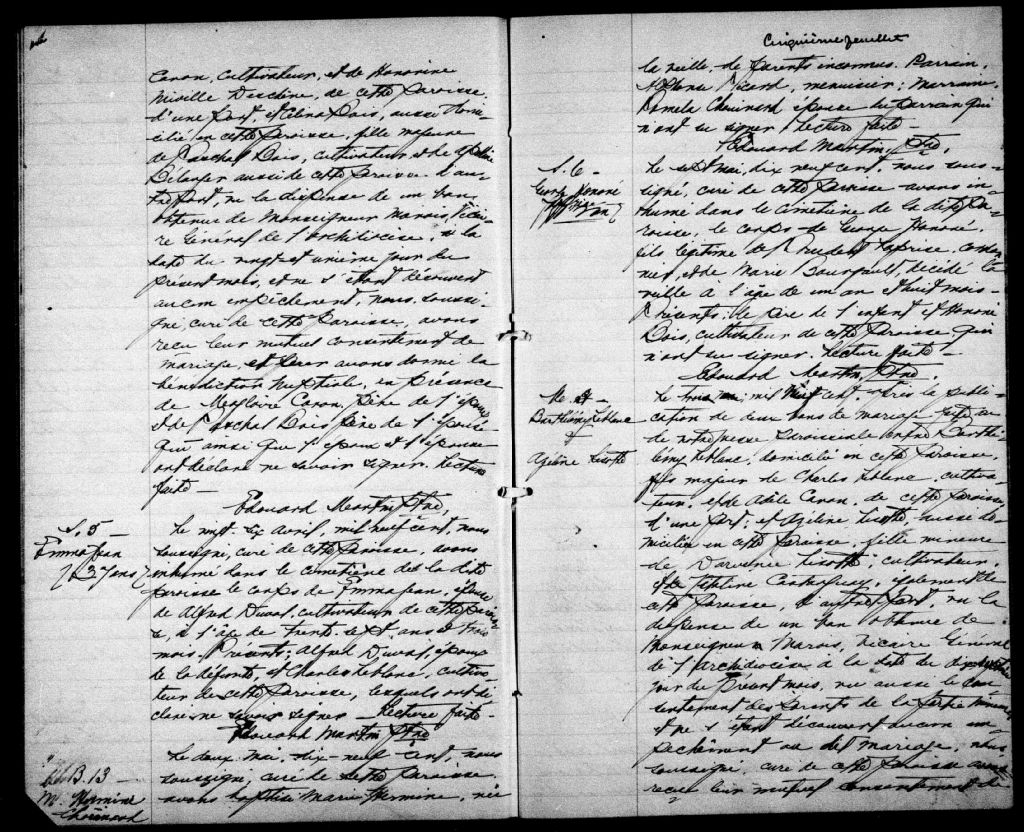 Caron, cultivateur, et de Honorine
Miville Deschêne, de cette paroisse,
d'une part, et Bois, aussi domi-
cilié en cette paroisse, fille majeure
de Paschal Bois, cultivateur, et de
Bélanger aussi de cette paroisse d'au-
tre part, vu la dispense de un ban
obtenue de Monseigneur Marois, Vicai-
re Général de l'archidiocèse, à la
date du vingt et unième jour du
présent mois, et ne s'étant découvert
aucun empêchement, nous, soussi-
gné, curé de cette paroisse, avons
reçu leur mutuel consentement de
mariage, et leur avons donné la
bénédiction nuptiale, en présence
de Caron, père de l'époux
et de Paschal Bois père de l'épouse
qui ainsi que l'époux et l'épouse
ont déclaré ne savoir signer. Lecture
faite -
Edouard Martin Ptre,
S. 5
Emma Jean
(37 ans)
Le vingt-six avril, mil neuf cent, nous
soussigné, curé de cette paroisse, avons
inhumé dans le cimetière de la dite
paroisse le corps de Emma Jean, épouse
de Alfred Duval, cultivateur de cette parois-
se, à l'âge de trente sept ans et trois
mois. Présents; Alfred Duval, époux
de la défunte, et Charles Leblanc, cultiva-
teur de cette paroisse, lesquels ont dé-
claré ne savoir signer - Lecture faite -
Edouard Martin Ptre
B. 13 -
M. Hermine
Chouinard
Le deux, mai, dix-neuf cent, nous
soussigné, curé de cette paroisse,
avons baptisé Marie Hermine, née
Cinquième feuillet
la veille, de parents inconnus. Parrain,
Alphonse Picard, menuisier; marraine
Pamela Chouinard épouse du parrain qui
n'ont su signer. Lecture faite -
Edouard Martin, Ptre.
S. 6 -
George Honoré
Le sept mai, dix neuf cent, nous sous-
signé, curé de cette paroisse avons in-
humé dans le cimetière de la dite pa-
roisse, le corps de George Honoré,
fils légitime de Prudent Laprise, cordon-
nier, et de Marie Bourgault, décédé la
veille à l'âge de un an et huit mois -
Présents: le père de l'enfant et Honoré
Bois, cultivateur de cette paroisse qui
n'ont su signer. Lecture faite -
Edouard Martin Ptre.
M et -
Barthélémy Leblanc
&
Azéline Lizotte
Le mai, mil neuf cent, après la publi-
cation de deux bans de mariage faite au
de notre messe paroissiale entre Barthé-
lémy Leblanc, domicilié en cette paroisse,
fils majeur de Charles Leblanc, cultiva-
teur, et de Adèle Caron, de cette paroisse
d'une part; et Azéline Lizotte, aussi do-
miciliée en cette paroisse, fille mineure
de Lizotte, cultivateur,
et de également de
cette paroisse, d'autre part, vu la
dispense de un ban obtenue de
Monseigneur Marois, Vicaire Général
de l'archidiocèse à la date du
jour du présent mois, vu aussi le con-
sentement des parents de la partie mineure
et ne s'étant découvert aucun em-
pêchement au dit mariage, nous
soussigné, curé de cette paroisse avons
reçu leur mutuel consentement de